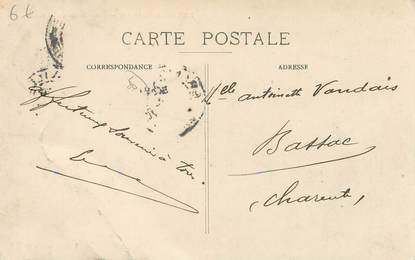 6€
CARTE POSTALE
CORRESPONDANCE
ADRESSE
souvenir à toi.
Mlle Antoinette Vandais
Bassac
(Charente)